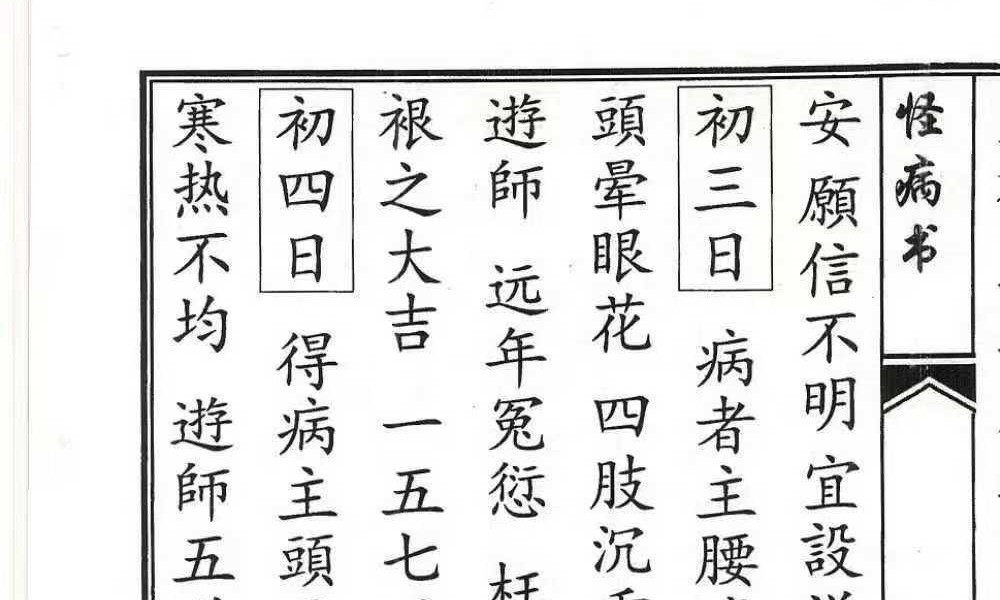 怪病书
安 願信不明 宜設
初三日 病者主腰
頭暈眼花 四肢沉
遊師 远年冤愆 枉
裉之大吉 一五七
初四日 得病主頭
寒热不均 遊師五